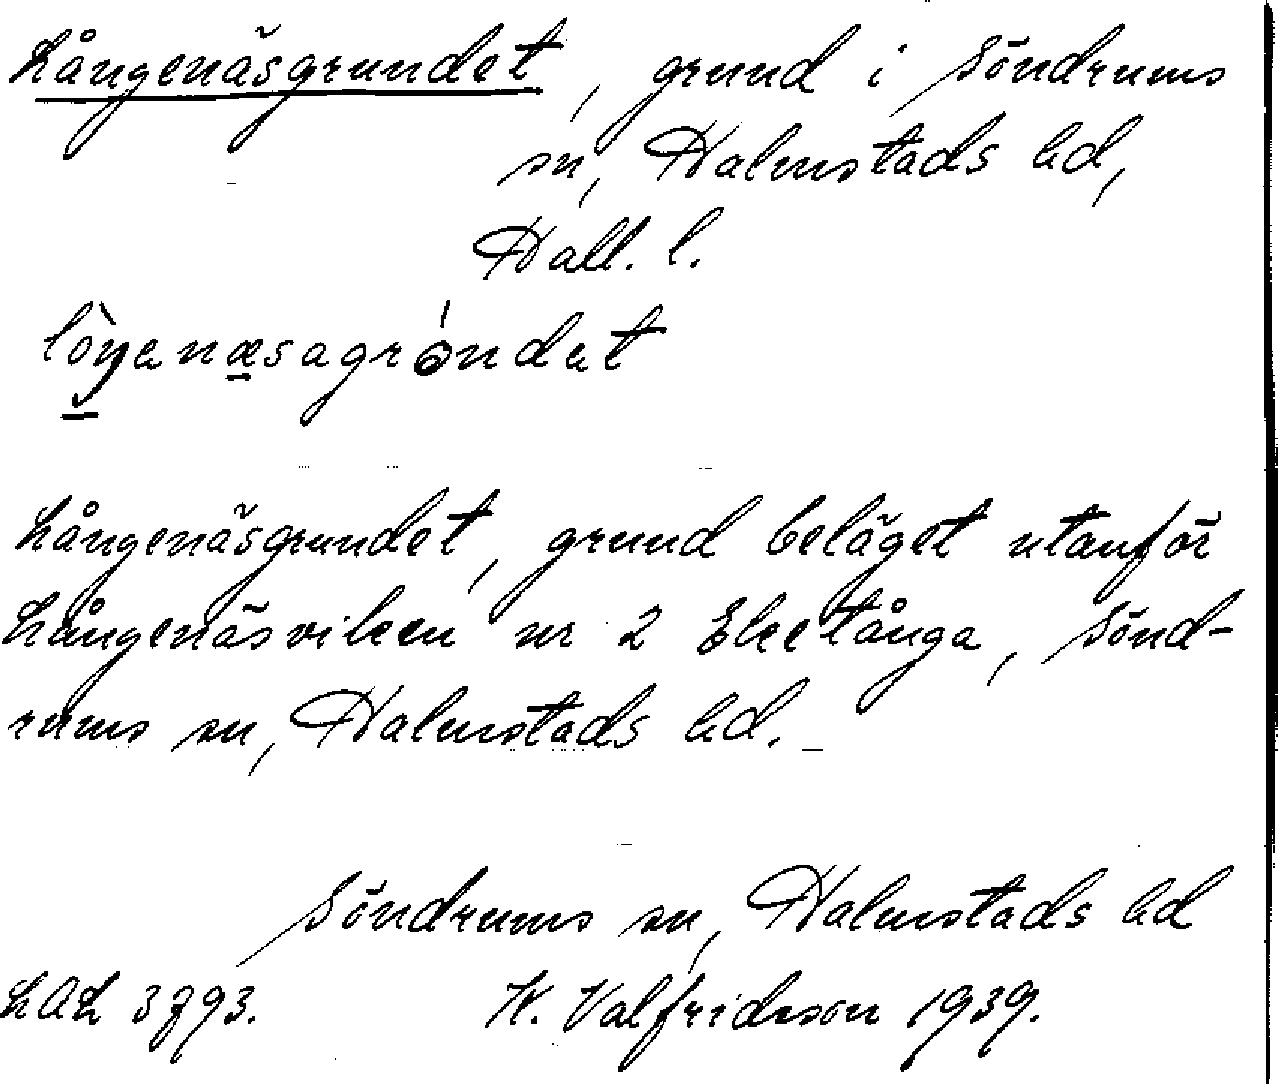 Långenäsgrundet, grund i Söndrums
sn, Halmstads hd,
Hall. l.
lòŋenæsagrǿndet
Långenäsgrundet, grund beläget utanför
Långenäsviken nr 2 Eketånga, Sönd-
rums sn, Halmstads hd.
Söndrums sn, Halmstads hd
LAL 3793. W. Valfridsson 1939.